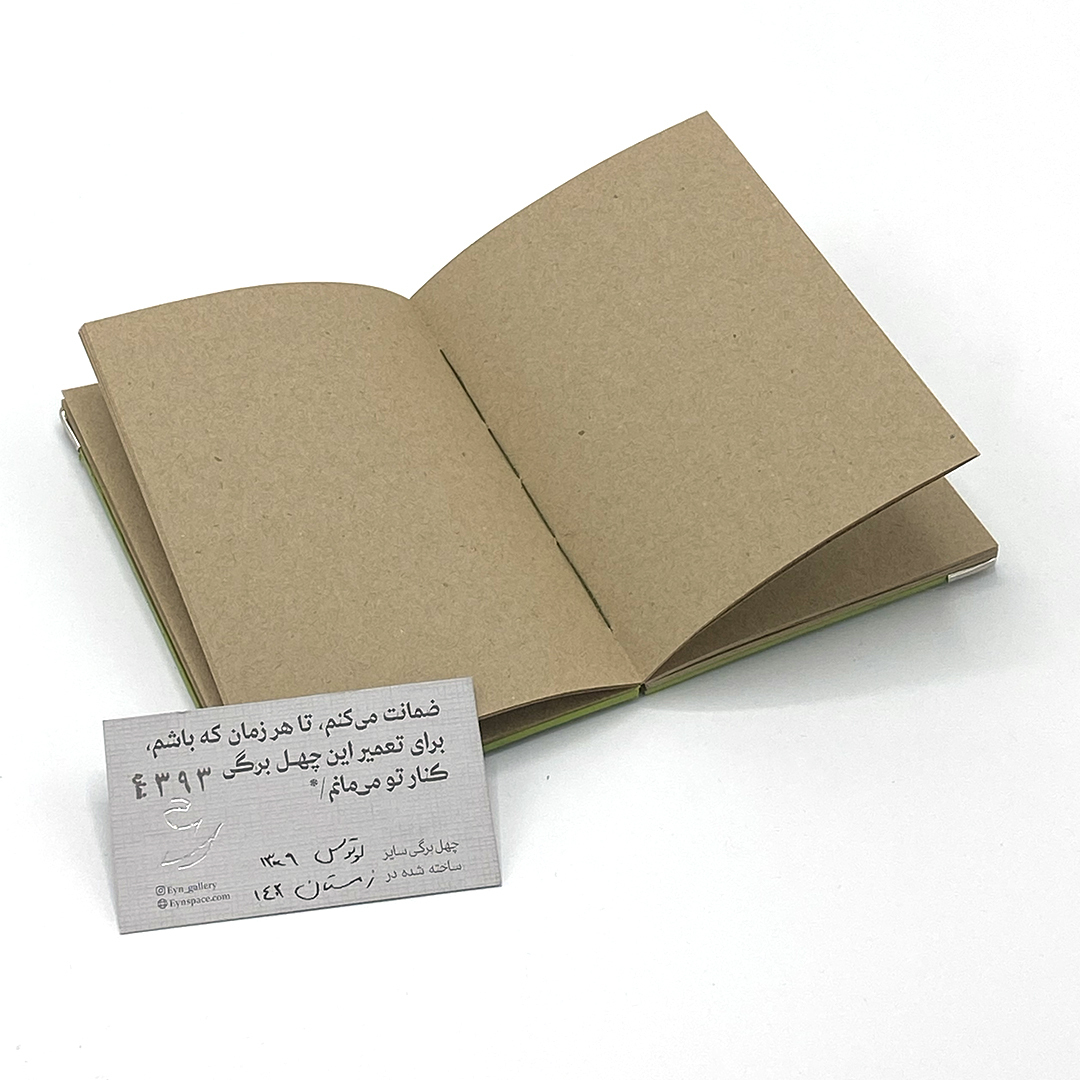 ضمانت می‌کنم، تا هر زمان که باشم،
برای تعمیر این چهل برگی
کنار تو می‌مانم/*
۴۳۹۳
چهل برگی سایز لوتوس ۹×۱۳
ساخته شده در زمستان ۱۴۰۲
Eyn_gallery
Eynspace.com